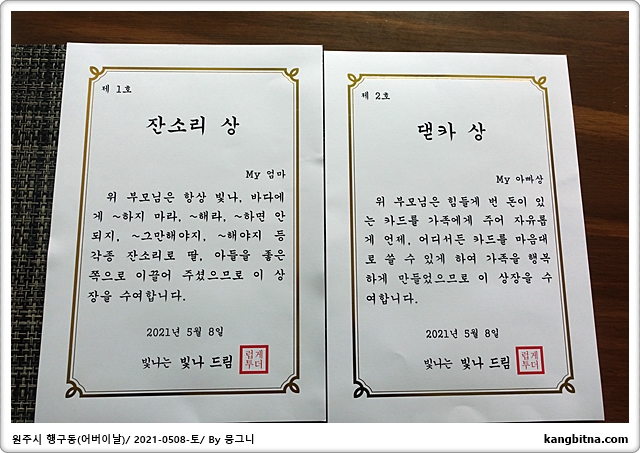 제 1호
잔소리 상
My 엄마
위 부모님은 항상 빛나, 바다에
게 ~하지 마라, ~해라, ~하면 안
되지, ~그만해야지, ~해야지 등
각종 잔소리로 딸, 아들을 좋은
쪽으로 이끌어 주셨으므로 이 상
장을 수여합니다.
2021년 5월 8일
빛나는 빛나 드림
럽게
투더
제 2호
댇카 상
My 아빠상
위 부모님은 힘들게 번 돈이 있
는 카드를 가족에게 주어 자유롭
게 언제, 어디서든 카드를 마음대
로 쓸 수 있게 하여 가족을 행복
하게 만들었으므로 이 상장을 수
여합니다.
2021년 5월 8일
빛나는 빛나 드림
럽게
투더
원주시 행구동(어버이날)/ 2021-0508-토/ By 뭉그니
kangbitna.com